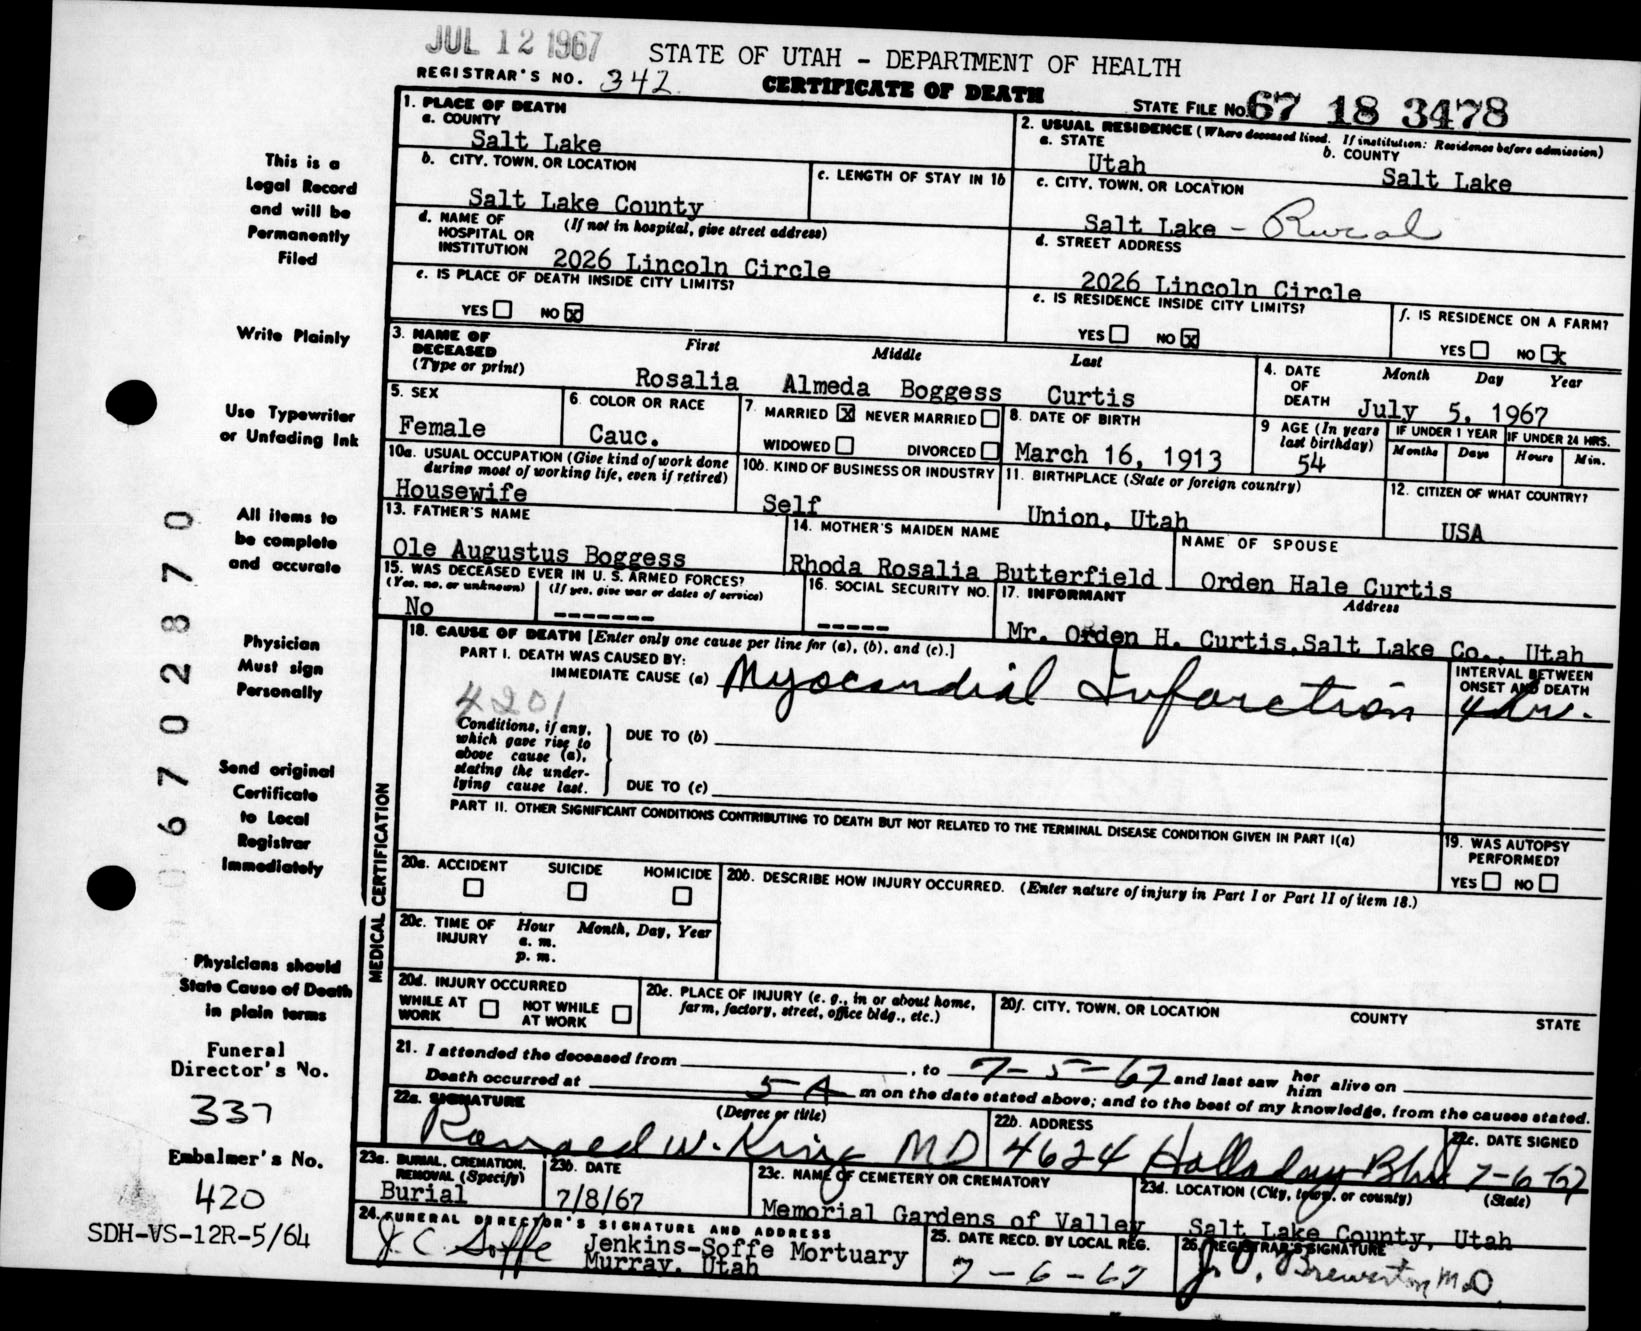 JUL 12 1967
STATE OF UTAH - DEPARTMENT OF HEALTH
REGISTRAR'S NO. 342
CERTIFICATE OF DEATH
STATE FILE NO. 67 18 3478
1. PLACE OF DEATH
a. COUNTY
Salt Lake
b. CITY, TOWN, OR LOCATION
Salt Lake County
c. LENGTH OF STAY IN 1b
d. NAME OF HOSPITAL OR INSTITUTION (If not in hospital, give street address)
2026 Lincoln Circle
e. IS PLACE OF DEATH INSIDE CITY LIMITS?
YES NO x
2. USUAL RESIDENCE (Where deceased lived. If institution: Residence before admission)
a. STATE
Utah
b. COUNTY
Salt Lake
c. CITY, TOWN, OR LOCATION
Salt Lake - Rural
d. STREET ADDRESS
2026 Lincoln Circle
e. IS RESIDENCE INSIDE CITY LIMITS?
YES NO x
f. IS RESIDENCE ON A FARM?
YES NO x
3. NAME OF DECEASED (Type or print)
First Middle Last
Rosalia Almeda Boggess Curtis
4. DATE OF DEATH Month Day Year
July 5, 1967
5. SEX
Female
6. COLOR OR RACE
Cauc.
7. MARRIED x NEVER MARRIED
WIDOWED DIVORCED
8. DATE OF BIRTH
March 16, 1913
9 AGE (In years last birthday)
54
IF UNDER 1 YEAR
Months Days
IF UNDER 24 HRS.
Hours Min.
10a. USUAL OCCUPATION (Give kind of work done during most of working life, even if retired)
Housewife
10b. KIND OF BUSINESS OR INDUSTRY
Self
11. BIRTHPLACE (State or foreign country)
Union, Utah
12. CITIZEN OF WHAT COUNTRY?
USA
13. FATHER'S NAME
Ole Augustus Boggess
14. MOTHER'S MAIDEN NAME
Rhoda Rosalia Butterfield
NAME OF SPOUSE
Orden Hale Curtis
15. WAS DECEASED EVER IN U. S. ARMED FORCES?
(Yes, no, or unknown) (If yes, give war or dates of service)
No -------
16. SOCIAL SECURITY NO.
-----
17. INFORMANT Address
Mr. Orden H. Curtis, Salt Lake Co., Utah
MEDICAL CERTIFICATION
18. CAUSE OF DEATH [Enter only one cause per line for (a), (b), and (c).]
PART I. DEATH WAS CAUSED BY:
IMMEDIATE CAUSE (a) Myocardial Infarction
INTERVAL BETWEEN ONSET AND DEATH
4 hr.
4201
Conditions, if any, which gave rise to above cause (a), stating the underlying cause last.
DUE TO (b)
DUE TO (c)
PART II. OTHER SIGNIFICANT CONDITIONS CONTRIBUTING TO DEATH BUT NOT RELATED TO THE TERMINAL DISEASE CONDITION GIVEN IN PART I(a)
19. WAS AUTOPSY PERFORMED?
YES NO
20a. ACCIDENT SUICIDE HOMICIDE
20b. DESCRIBE HOW INJURY OCCURRED. (Enter nature of injury in Part I or Part II of item 18.)
20c. TIME OF INJURY Hour Month, Day, Year
a. m.
p. m.
20d. INJURY OCCURRED
WHILE AT WORK NOT WHILE AT WORK
20e. PLACE OF INJURY (e. g., in or about home, farm, factory, street, office bldg., etc.)
20f. CITY, TOWN, OR LOCATION COUNTY STATE
21. I attended the deceased from , to 7-5-67 and last saw her him alive on
Death occurred at 5 A m on the date stated above; and to the best of my knowledge, from the causes stated.
22a. SIGNATURE (Degree or title)
Ronald W. King MD
22b. ADDRESS
4624 Holladay Blvd
22c. DATE SIGNED
7-6-67
23a. BURIAL, CREMATION, REMOVAL (Specify)
Burial
23b. DATE
7/8/67
23c. NAME OF CEMETERY OR CREMATORY
Memorial Gardens of Valley
23d. LOCATION (City, town, or county) (State)
Salt Lake County, Utah
24. FUNERAL DIRECTOR'S SIGNATURE AND ADDRESS
J. C. Soffe Jenkins-Soffe Mortuary
Murray, Utah
25. DATE RECD. BY LOCAL REG.
7-6-67
26. REGISTRAR'S SIGNATURE
J. O. Brewerton M.D.
This is a
Legal Record
and will be
Permanently
Filed
Write Plainly
Use Typewriter
or Unfading Ink
All items to
be complete
and accurate
Physician
Must sign
Personally
Send original
Certificate
to Local
Registrar
Immediately
Physicians should
State Cause of Death
in plain terms
Funeral
Director's No.
337
Embalmer's No.
420
SDH-VS-12R-5/64
0 6 7 0 2 8 7 0